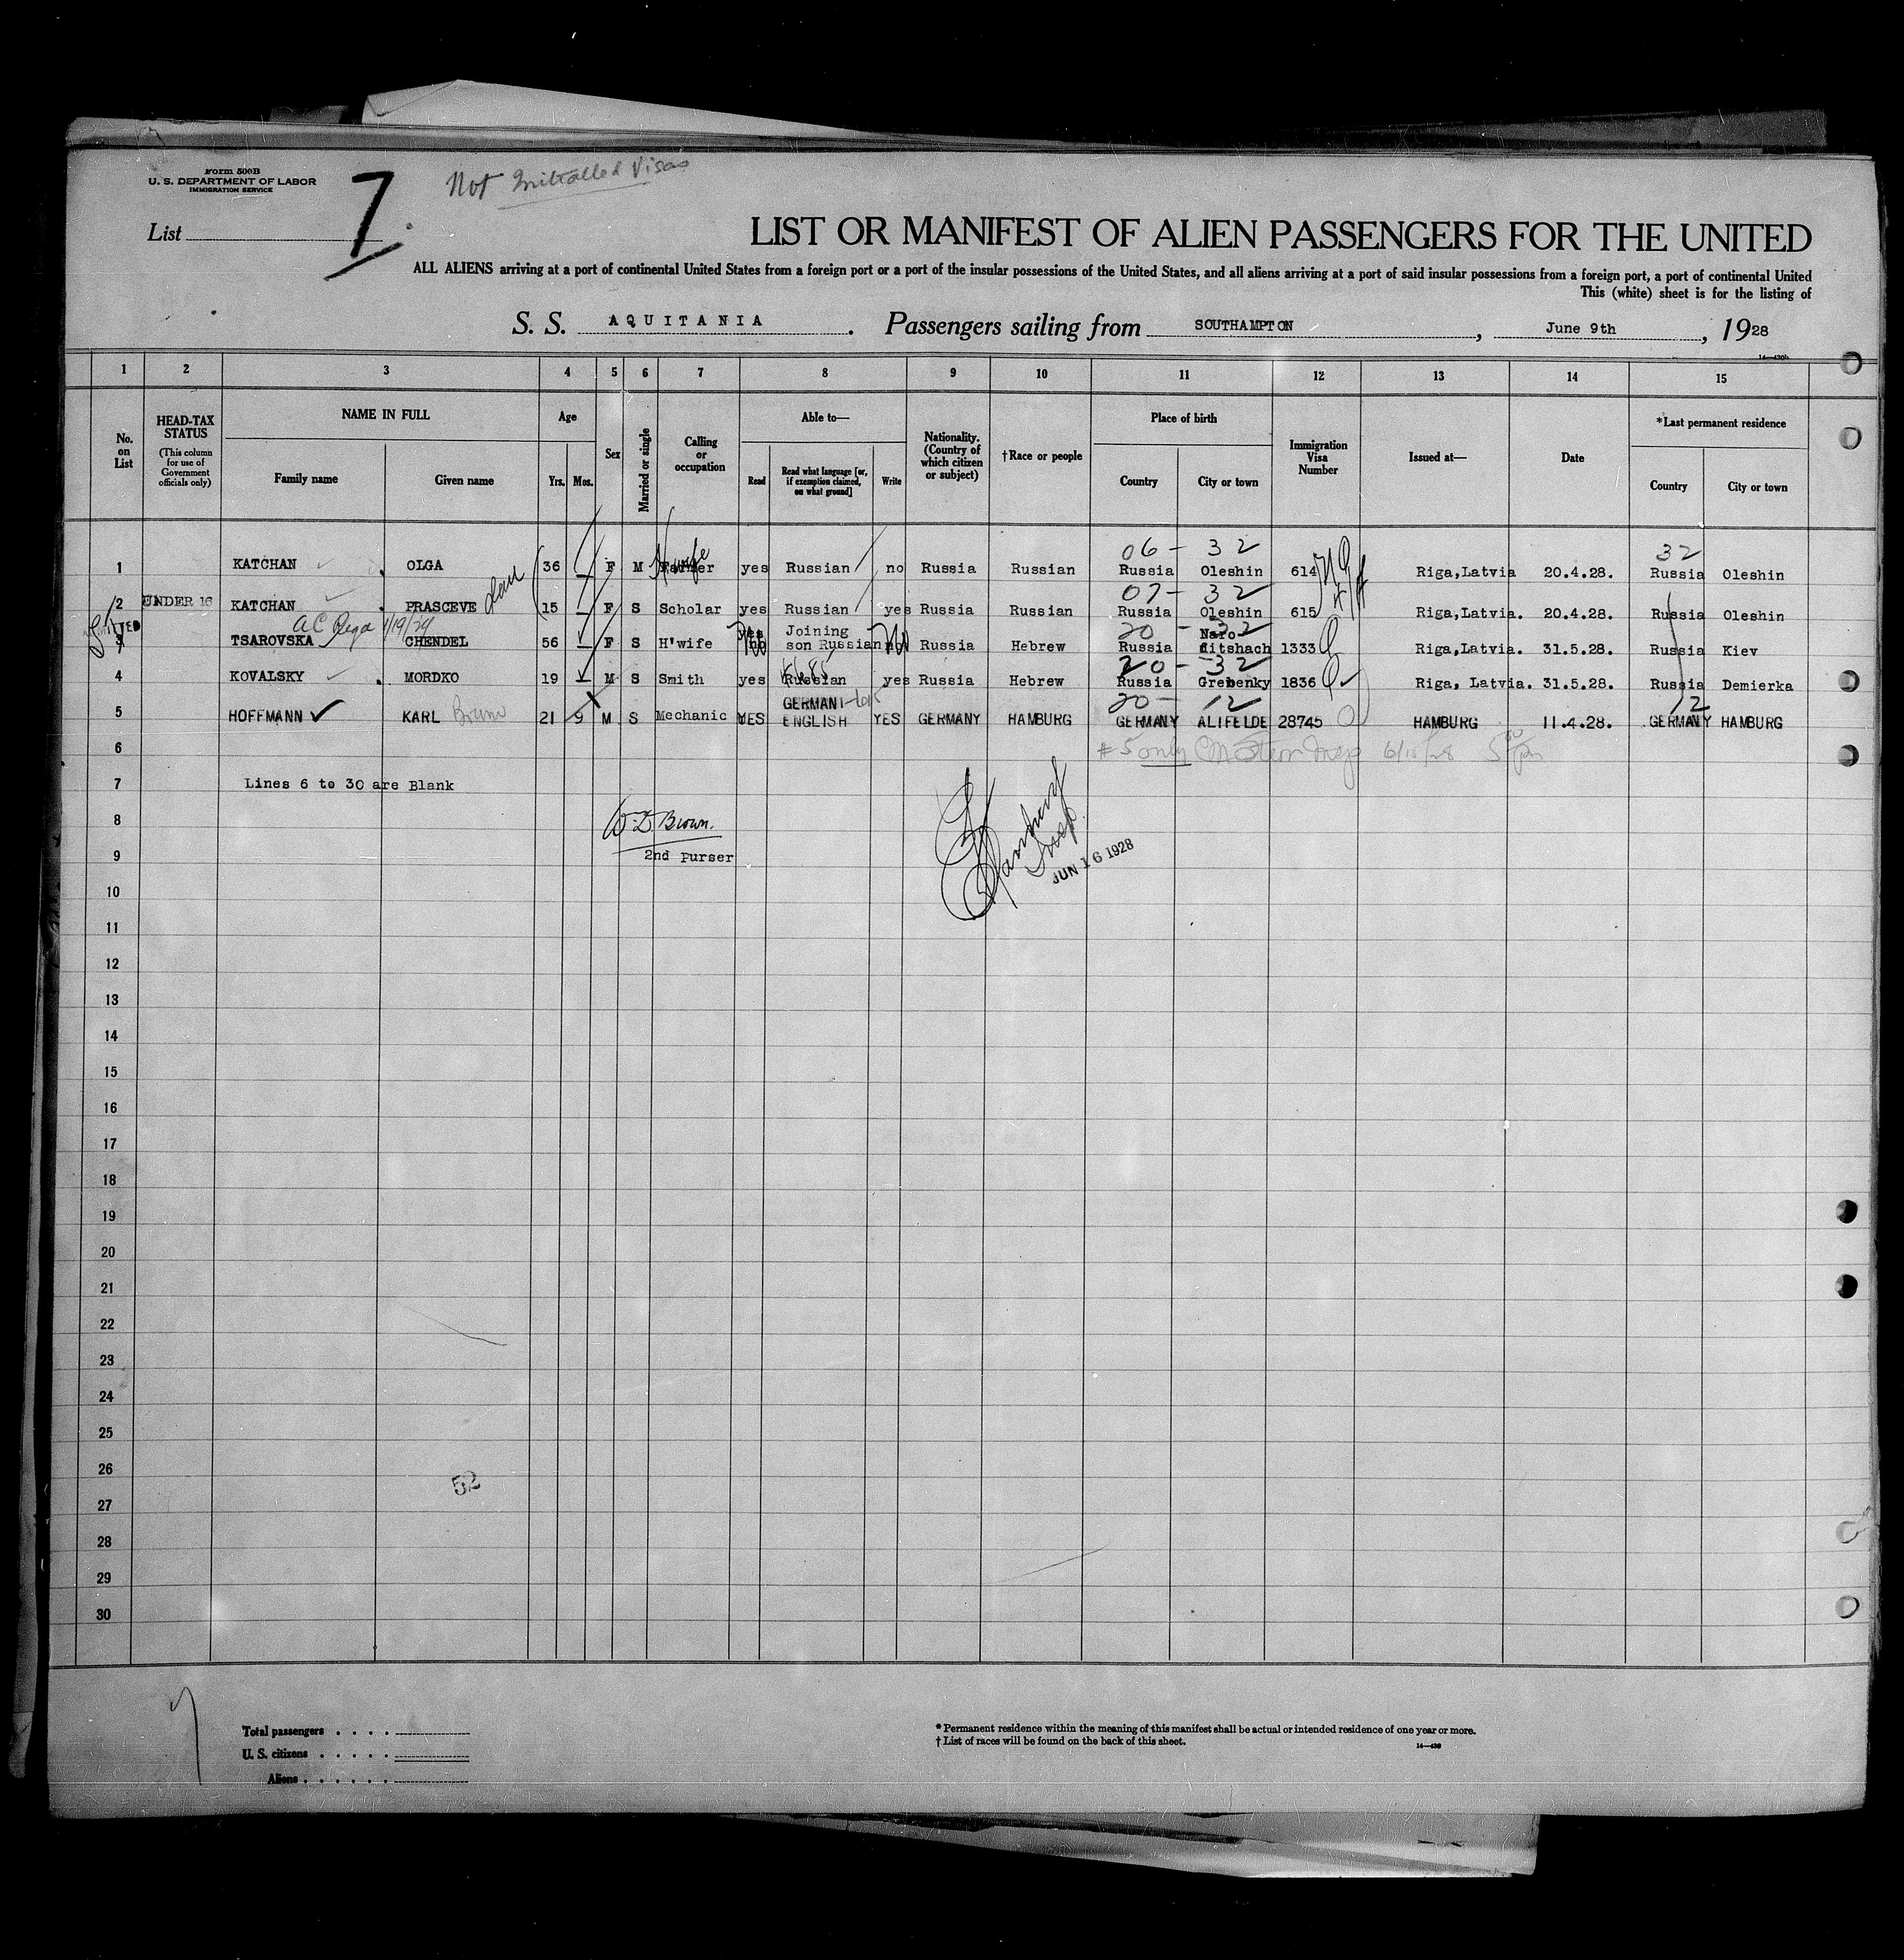 Form 500B
U. S. DEPARTMENT OF LABOR
IMMIGRATION SERVICE
Not Initialled Visas
List 7.
LIST OR MANIFEST OF ALIEN PASSENGERS FOR THE UNITED
ALL ALIENS arriving at a port of continental United States from a foreign port or a port of the insular possessions of the United States, and all aliens arriving at a port of said insular possessions from a foreign port, a port of continental United
This (white) sheet is for the listing of
S. S. AQUITANIA. Passengers sailing from SOUTHAMPTON, June 9th, 1928
1 2 3 4 5 6 7 8 9 10 11 12 13 14 15
No. on List
HEAD-TAX STATUS
(This column for use of Government officials only)
NAME IN FULL
Family name
Given name
Age
Yrs. Mos.
Sex
Married or single
Calling or occupation
Able to—
Read
Read what language [or, if exemption claimed, on what ground]
Write
Nationality. (Country of which citizen or subject)
†Race or people
Place of birth
Country
City or town
Immigration Visa Number
Issued at—
Date
*Last permanent residence
Country
City or town
06 - 32 32
1 KATCHAN OLGA 36 F M H'wife Farmer yes Russian no Russia Russian Russia Oleshin 614 Riga,Latvia 20.4.28. Russia Oleshin
07 - 32
2 UNDER 16 KATCHAN PRASCEVE dau 15 F S Scholar yes Russian yes Russia Russian Russia Oleshin 615 Riga,Latvia. 20.4.28. Russia Oleshin
AC Riga 1/19/29
20 - 32
3 TSAROVSKA CHENDEL 56 F S H'wife yes no Joining son Russian no Russia Hebrew Russia Naroditshach 1333 Riga,Latvia. 31.5.28. Russia Kiev
20 - 32
4 KOVALSKY MORDKO 19 M S Smith yes Russian yes Russia Hebrew Russia Grebenky 1836 Riga, Latvia. 31.5.28. Russia Demierka
20 - 12 12
5 HOFFMANN KARL Bruno 21 9 M S Mechanic YES GERMAN ENGLISH YES GERMANY HAMBURG GERMANY ALIFELDE 28745 HAMBURG 11.4.28. GERMANY HAMBURG
6 #5 only
7 Lines 6 to 30 are Blank
8 W D Brown.
9 2nd Purser
Insp.
JUN 16 1928
10
11
12
13
14
15
16
17
18
19
20
21
22
23
24
25
26
52
27
28
29
30
Total passengers
U. S. citizens
Aliens
* Permanent residence within the meaning of this manifest shall be actual or intended residence of one year or more.
† List of races will be found on the back of this sheet.
14—430